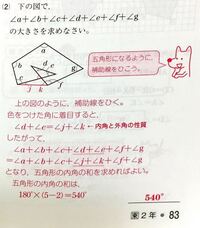 (2) 下の図で、
∠a+∠b+∠c+∠d+∠e+∠f+∠g
の大きさを求めなさい。
a
b
c
d
e
f
g
j
k
五角形になるように、
補助線をひこう。
上の図のように、補助線をひく。
色をつけた角に着目すると、
∠d+∠e=∠j+∠k ←内角と外角の性質
したがって、
∠a+∠b+∠c+∠d+∠e+∠f+∠g
=∠a+∠b+∠c+∠j+∠k+∠f+∠g
となり、五角形の内角の和を求めればよい。
五角形の内角の和は、
180°×(5-2)=540°
540°
2年・83